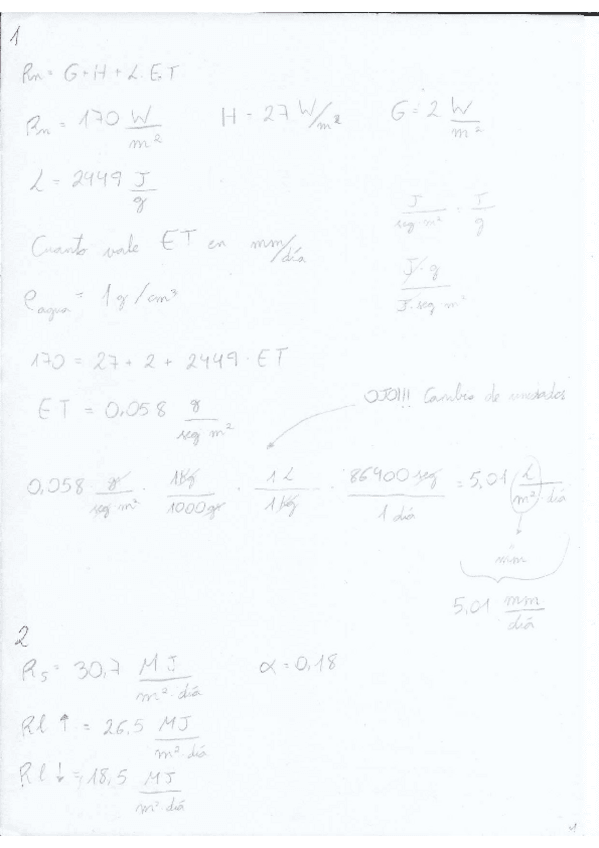 1
Rn = G + H + L·ET
Rn = 170 W/m² H = 27 W/m² G = 2 W/m²
L = 2449 J/g
J/seg m² · J/g
Cuanto vale ET en mm/día
J·g/J·seg m²
ρagua = 1g/cm³
170 = 27 + 2 + 2449·ET
OJO!!! Cambio de unidades
ET = 0,058 g/seg m²
0,058 g/seg m² · 1kg/1000gr · 1L/1kg · 86400 seg/1 día = 5,01 L/m² día
mm
5,01 mm/día
2
Rs = 30,7 MJ/m²·día α = 0,18
Rl ↑ = 26,5 MJ/m² día
Rl ↓ = 18,5 MJ/m² día